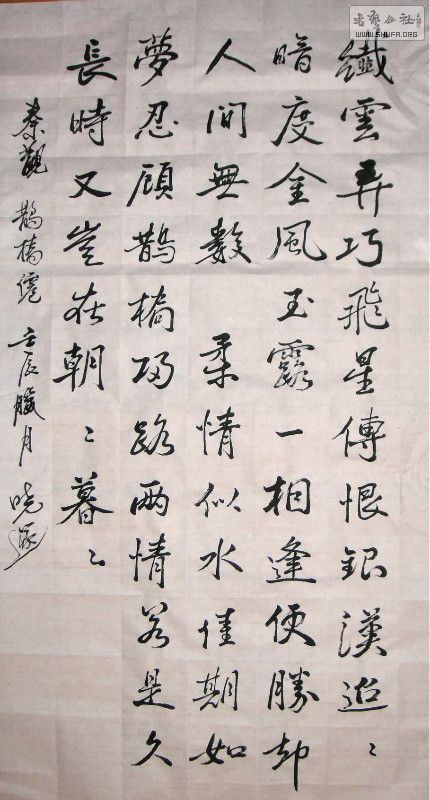 纖雲弄巧飛星傳恨銀漢迢〻
暗度金風玉露一相逢便勝却
人間無數 柔情似水佳期如
夢忍顧鵲橋歸路兩情若是久
長時又豈在朝〻暮〻
秦觀 鵲橋僊 壬辰臘月
書藝公社
WWW.SHUFA.ORG